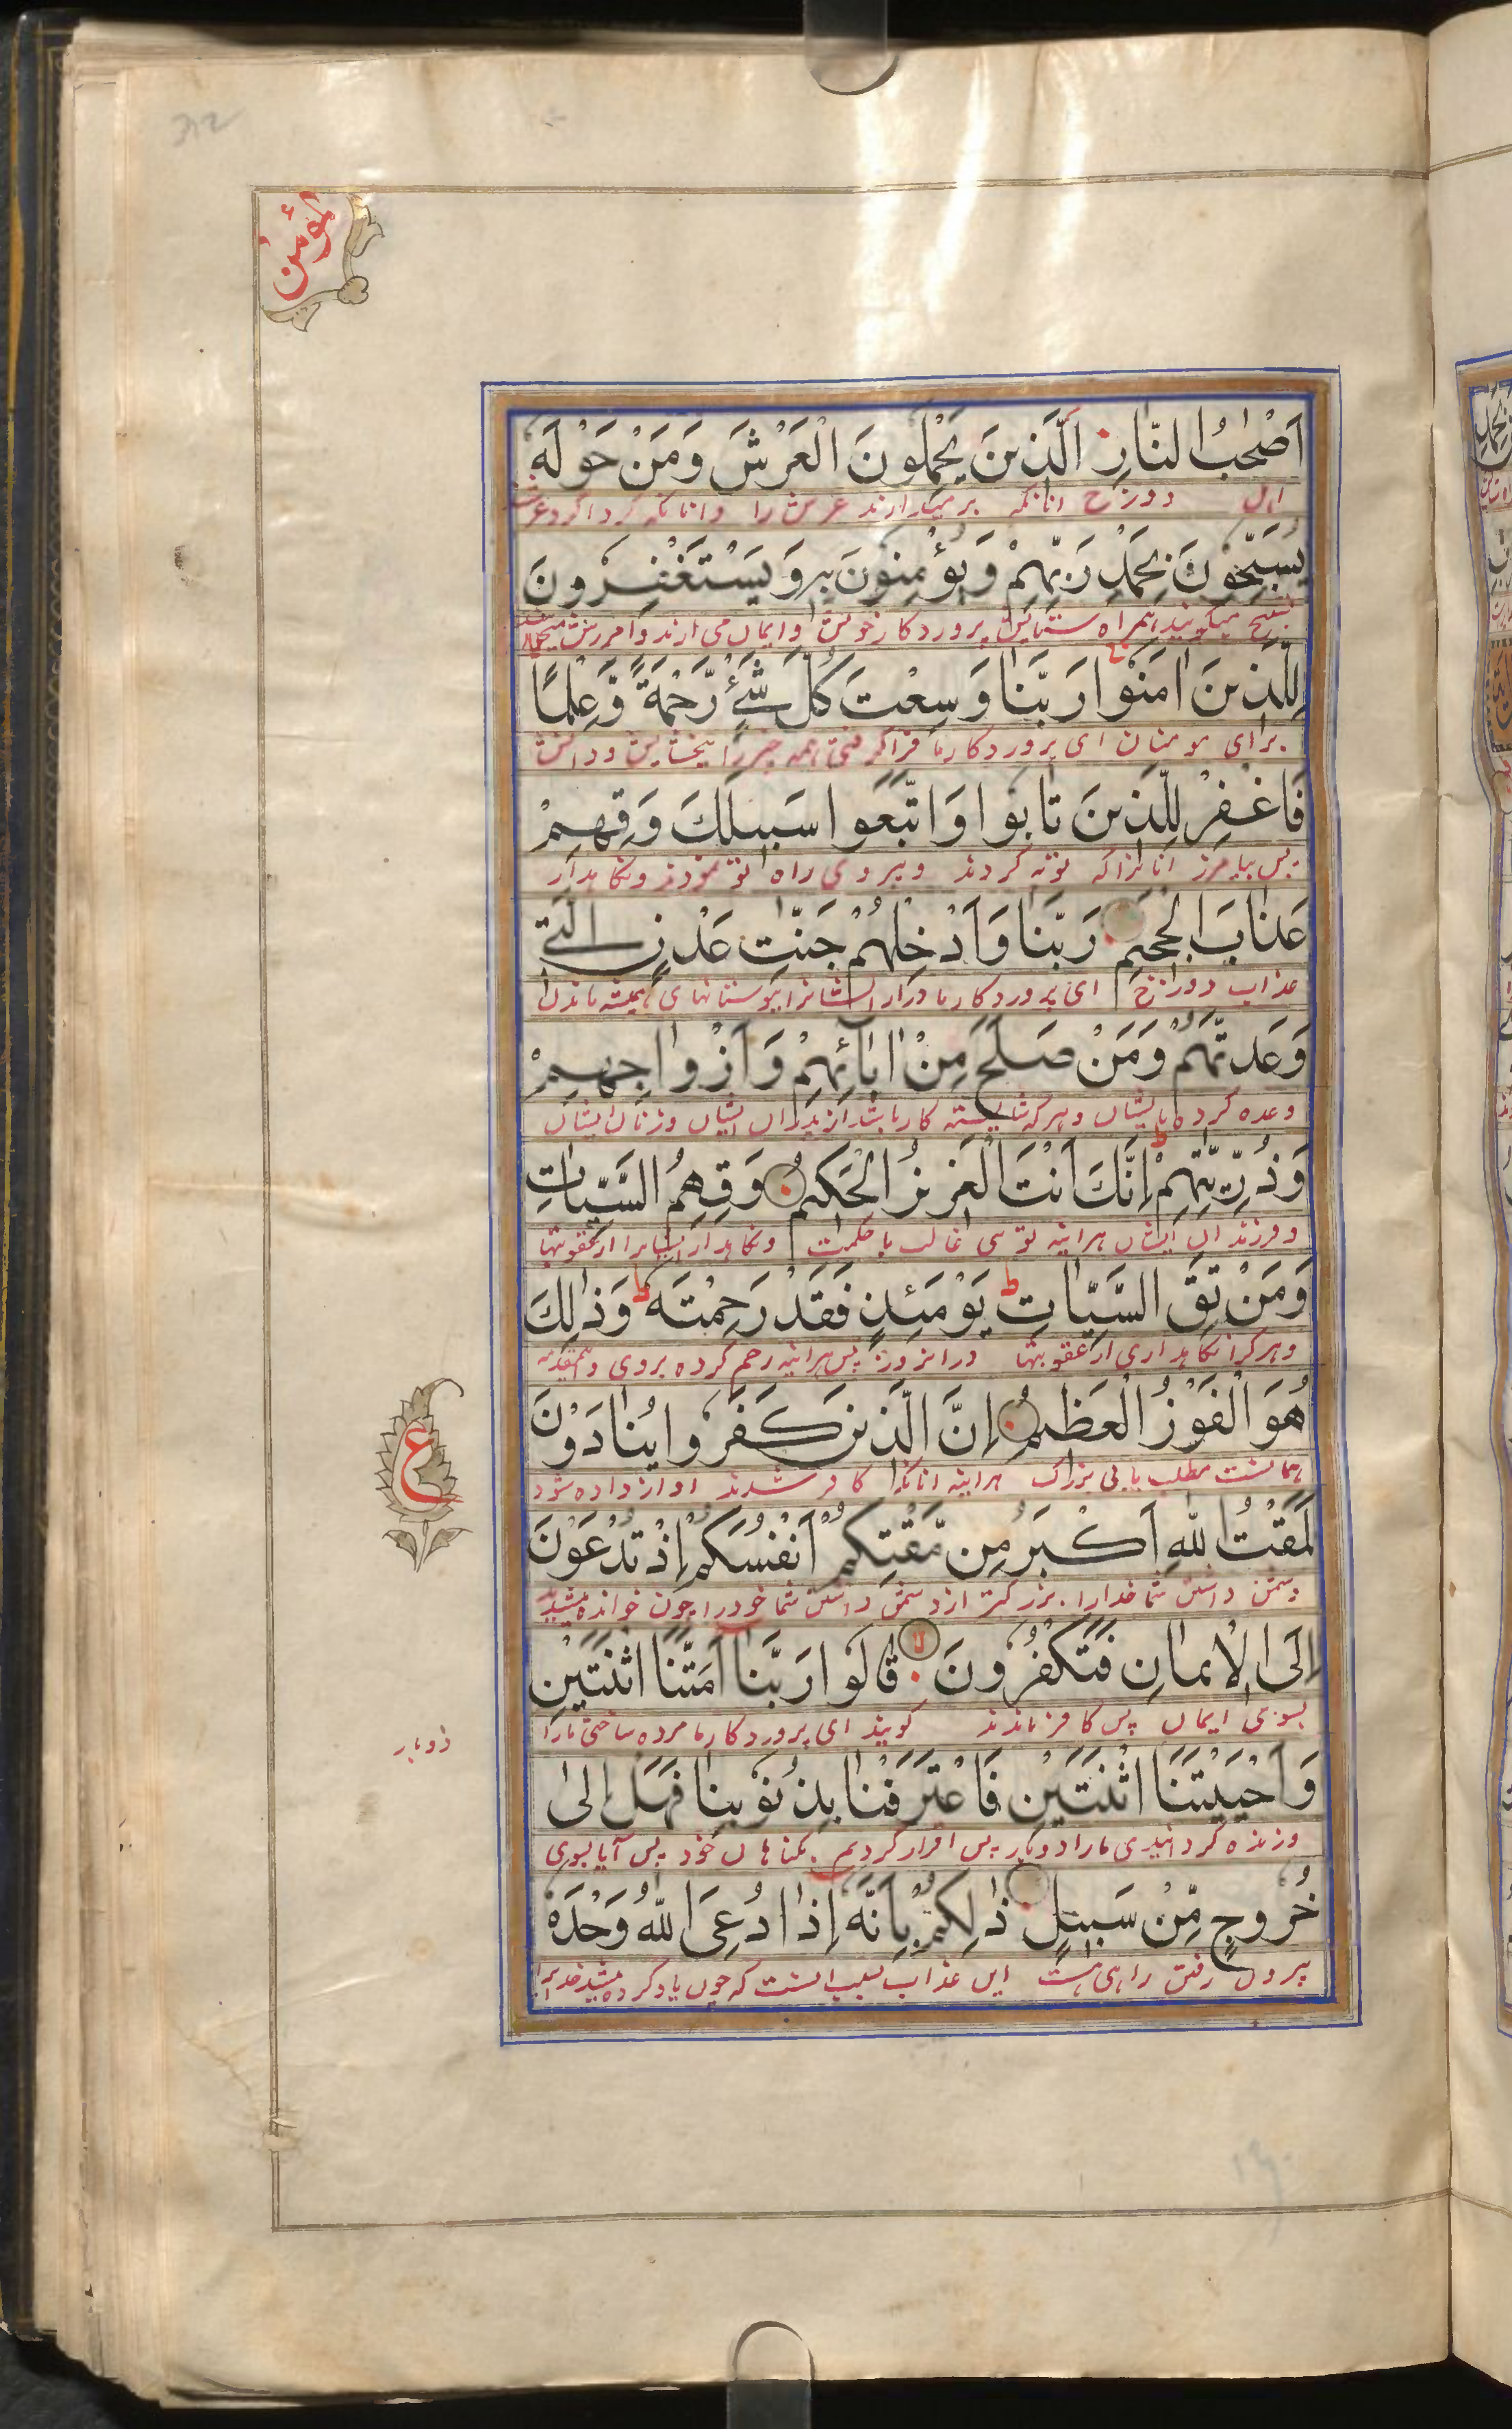 المؤمن
اَصْحٰبُ النَّارِ الَّذِينَ يَحْمِلُونَ الْعَرْشَ وَمَنْ حَوْلَهٗ
اهل دوزخ انانکه برمیدارند عرش را وانانکه گرداگرد عرش
يُسَبِّحُونَ بِحَمْدِ رَبِّهِمْ وَيُؤْمِنُونَ بِهٖ وَيَسْتَغْفِرُونَ
تسبیح میگویند همراه ستایش پروردگار خویش وایمان می ارند وامرزش میطلبند
لِلَّذِينَ اٰمَنُوْا رَبَّنَا وَسِعْتَ كُلَّ شَیْءٍ رَّحْمَةً وَّعِلْمًا
برای مومنان ای پروردگار ما فراگرفتی همه چیز را ببخشایش ودانش
فَاغْفِرْ لِلَّذِينَ تَابُوا وَاتَّبَعُوا سَبِيلَكَ وَقِهِمْ
پس بیامرز انانرا که توبه کردند وپیروی راه تو نمودند ونگاهدار
عَذَابَ الْجَحِيمِ رَبَّنَا وَاَدْخِلْهُمْ جَنّٰتِ عَدْنِ الَّتِی
عذاب دوزخ ای پروردگار ما ودرار ایشانرا ببوستانهای همیشه ماندن
وَعَدْتَّهُمْ وَمَنْ صَلَحَ مِنْ اٰبَآئِهِمْ وَاَزْوَاجِهِمْ
وعده کرده بایشان وهرکه شایسته کار باشد از پدران ایشان وزنان ایشان
وَذُرِّيّٰتِهِمْ اِنَّكَ اَنْتَ الْعَزِيزُ الْحَكِيمُ وَقِهِمُ السَّيِّاٰتِ
وفرزندان ایشان هراینه تویی غالب با حکمت ونگاهدار ایشانرا از عقوبتها
وَمَنْ تَقِ السَّيِّاٰتِ يَوْمَئِذٍ فَقَدْ رَحِمْتَهٗ وَذٰلِكَ
وهرکرا نگاهداری از عقوبتها درانروز پس هراینه رحم کرده بروی
هُوَ الْفَوْزُ الْعَظِيمُ اِنَّ الَّذِينَ كَفَرُوا يُنَادَوْنَ
همانست مطلب یابی بزرگ هراینه انانکه کافر شدند اواز داده شود
ع
لَمَقْتُ اللّٰهِ اَكْبَرُ مِن مَّقْتِكُمْ اَنْفُسَكُمْ اِذْ تُدْعَوْنَ
دشمن داشتن شما خدارا بزرگتر از دشمن داشتن شما خودرا چون خوانده میشدید
اِلَى الْاِيمَانِ فَتَكْفُرُونَ لا قَالُوا رَبَّنَا اَمَتَّنَا اثْنَتَيْنِ
بسوی ایمان پس کافر ماندند گویند ای پروردگار ما مرده ساختی مارا
دوبار
وَاَحْيَيْتَنَا اثْنَتَيْنِ فَاعْتَرَفْنَا بِذُنُوبِنَا فَهَلْ اِلٰى
وزنده گردانیدی مارا دوبار پس اقرار کردیم بگناهان خود پس آیا بسوی
خُرُوجٍ مِّنْ سَبِيلٍ ذٰلِكُمْ بِاَنَّهٗ اِذَا دُعِىَ اللّٰهُ وَحْدَهٗ
بیرون رفتن راهی هست این عذاب بسبب انست که چون یاد کرده میشد خدایرا